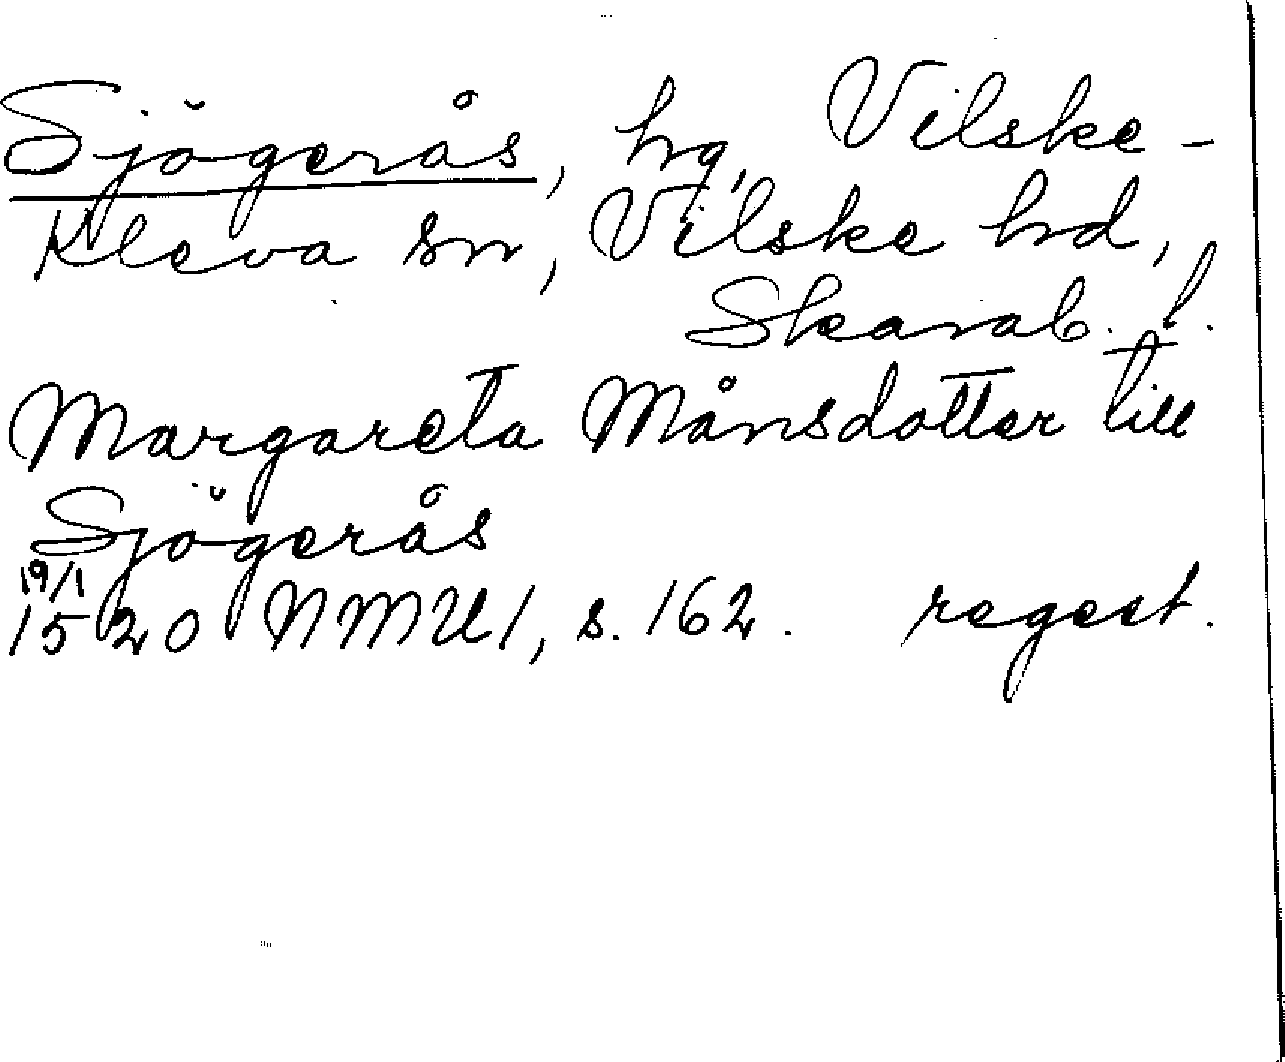 Sjögerås, hg, Vilske-
Kleva sn, Vilske hd,
Skarab. l.
Margareta Månsdotter till
Sjögerås
19/1
1520 NMU1, s. 162. regest.